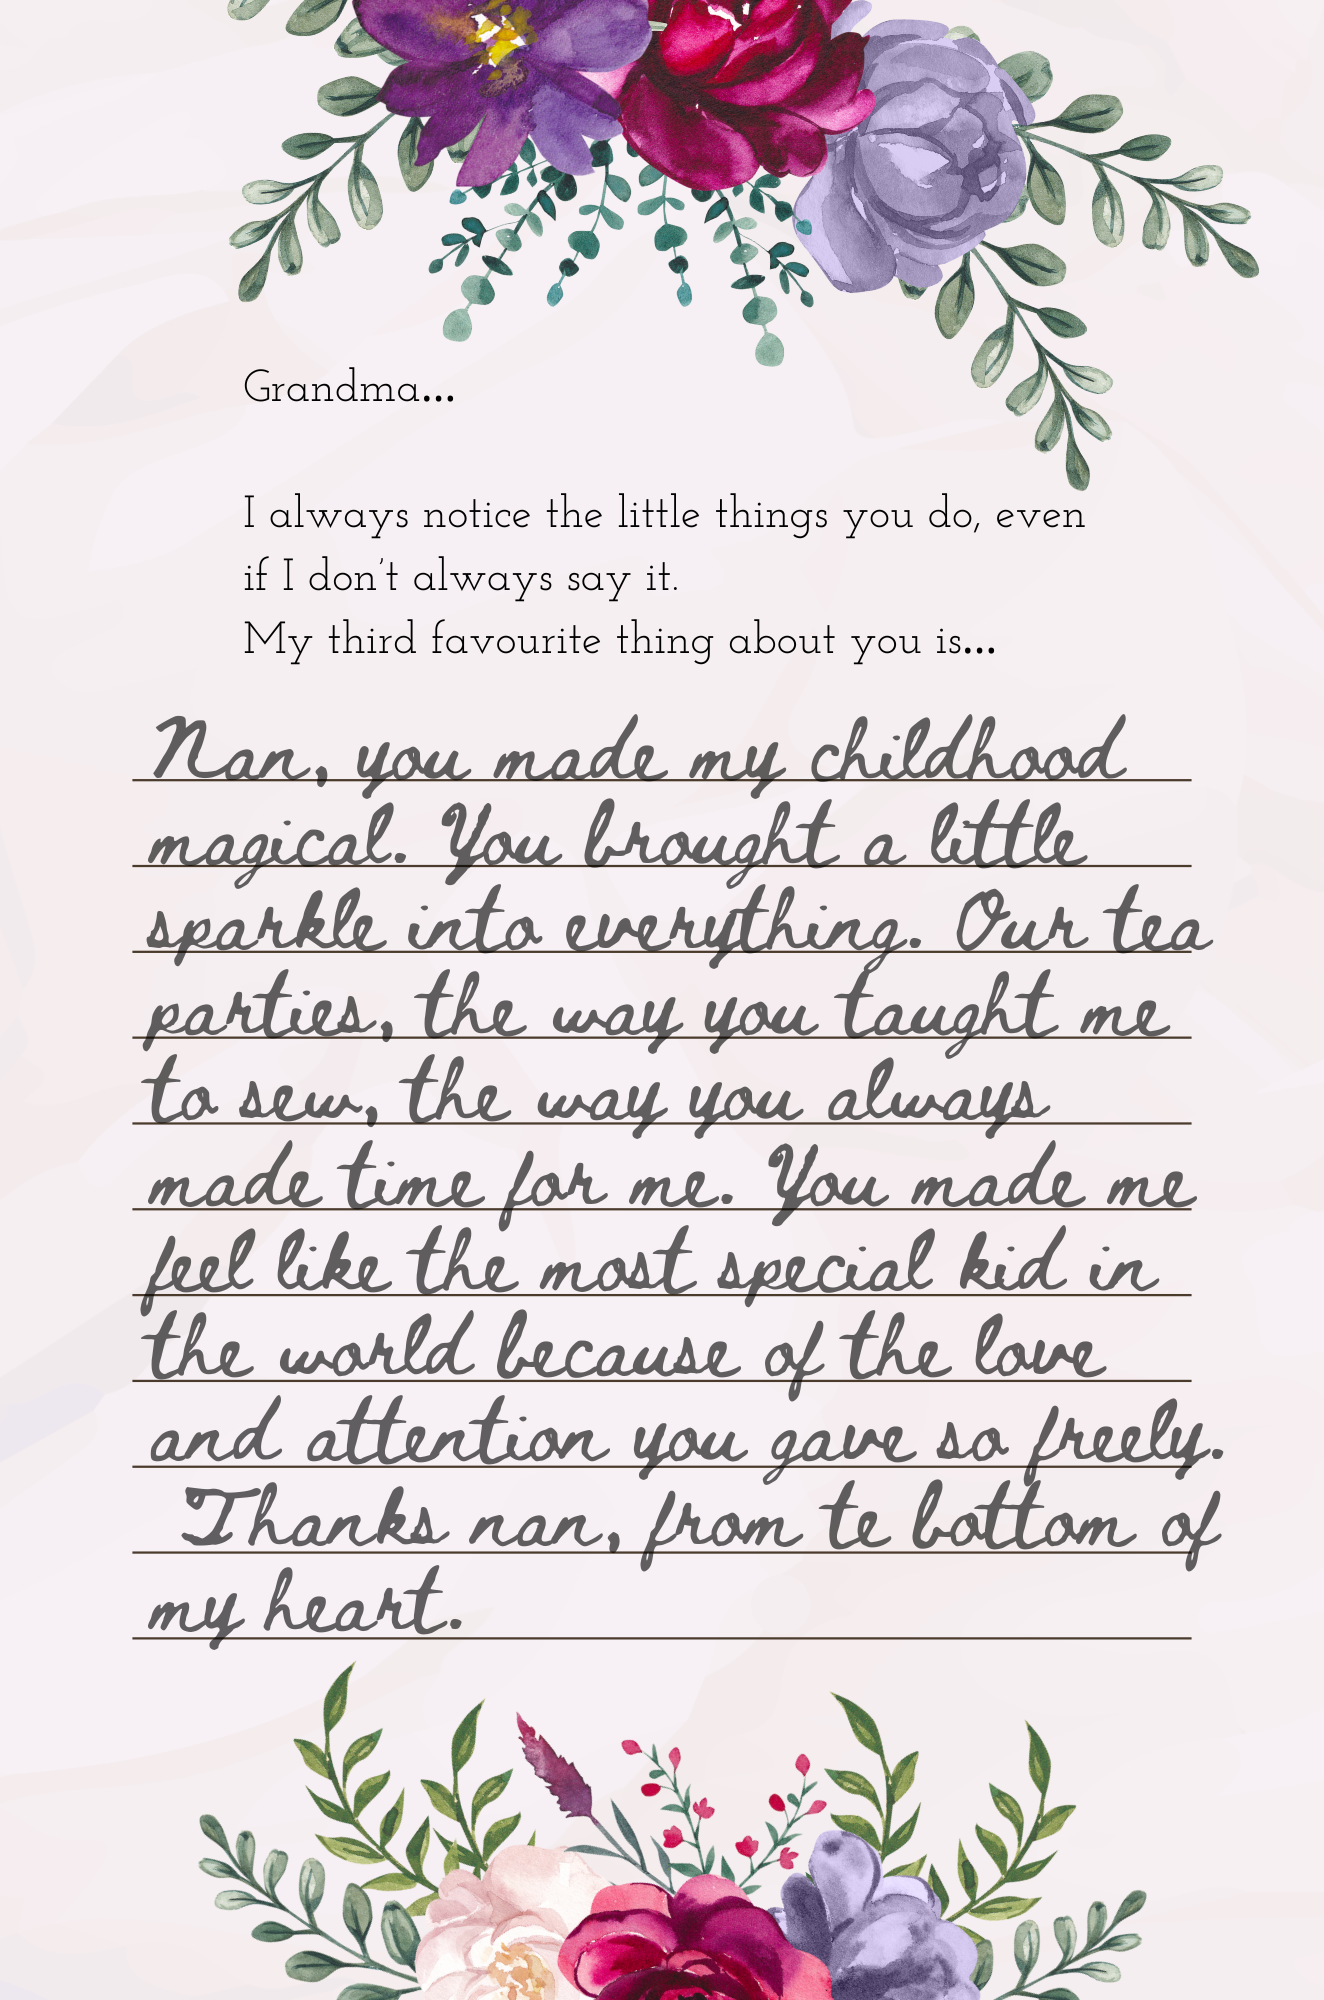 Grandma...
I always notice the little things you do, even
if I don't always say it.
My third favourite thing about you is...
Nan, you made my childhood
magical. You brought a little
sparkle into everything. Our tea
parties, the way you taught me
to sew, the way you always
made time for me. You made me
feel like the most special kid in
the world because of the love
and attention you gave so freely.
Thanks nan, from te bottom of
my heart.